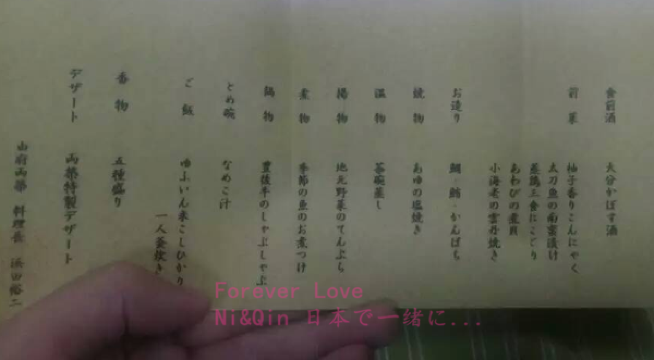 食前酒 大分かぼす酒
前菜 柚子香りこんにゃく
太刀魚の南蛮漬け
あわびの煮貝
小海老の雲丹焼き
お造り 鯛・鮪・かんぱち
焼物 あゆの塩焼き
温物 茶碗蒸し
揚物 地元野菜のてんぷら
煮物 季節の魚のお煮つけ
鍋物 豊後牛のしゃぶしゃぶ
とめ碗 なめこ汁
ご飯 ゆふいん米こしひかり
一人釜炊き
香物 五種盛り
デザート 両築特製デザート
山府両築 料理長
Forever Love
Ni&Qin 日本で一緒に...